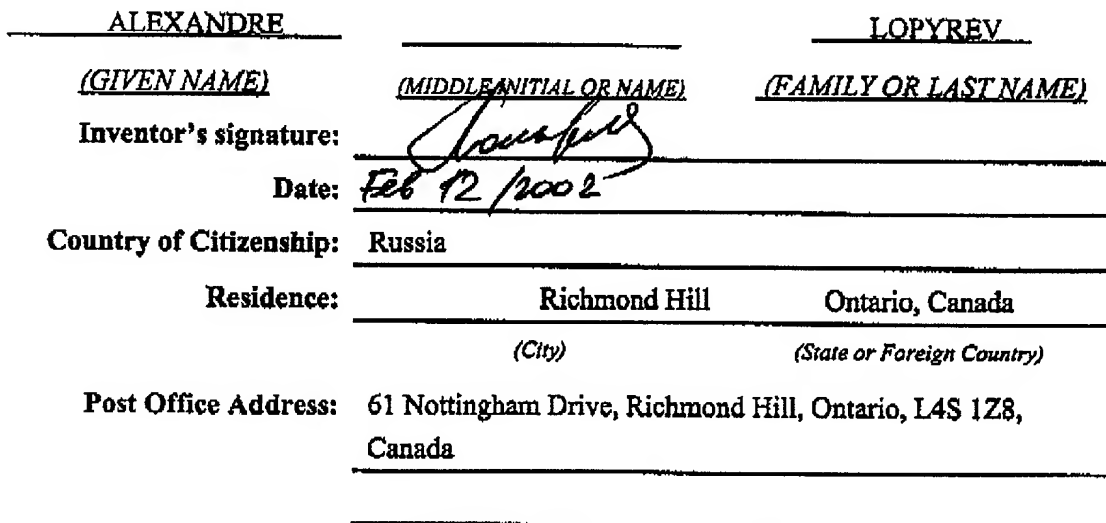 ALEXANDRE LOPYREV
(GIVEN NAME) (MIDDLE INITIAL OR NAME) (FAMILY OR LAST NAME)
Inventor's signature:
Date: Feb 12/2002
Country of Citizenship: Russia
Residence: Richmond Hill Ontario, Canada
(City) (State or Foreign Country)
Post Office Address: 61 Nottingham Drive, Richmond Hill, Ontario, L4S 1Z8,
Canada